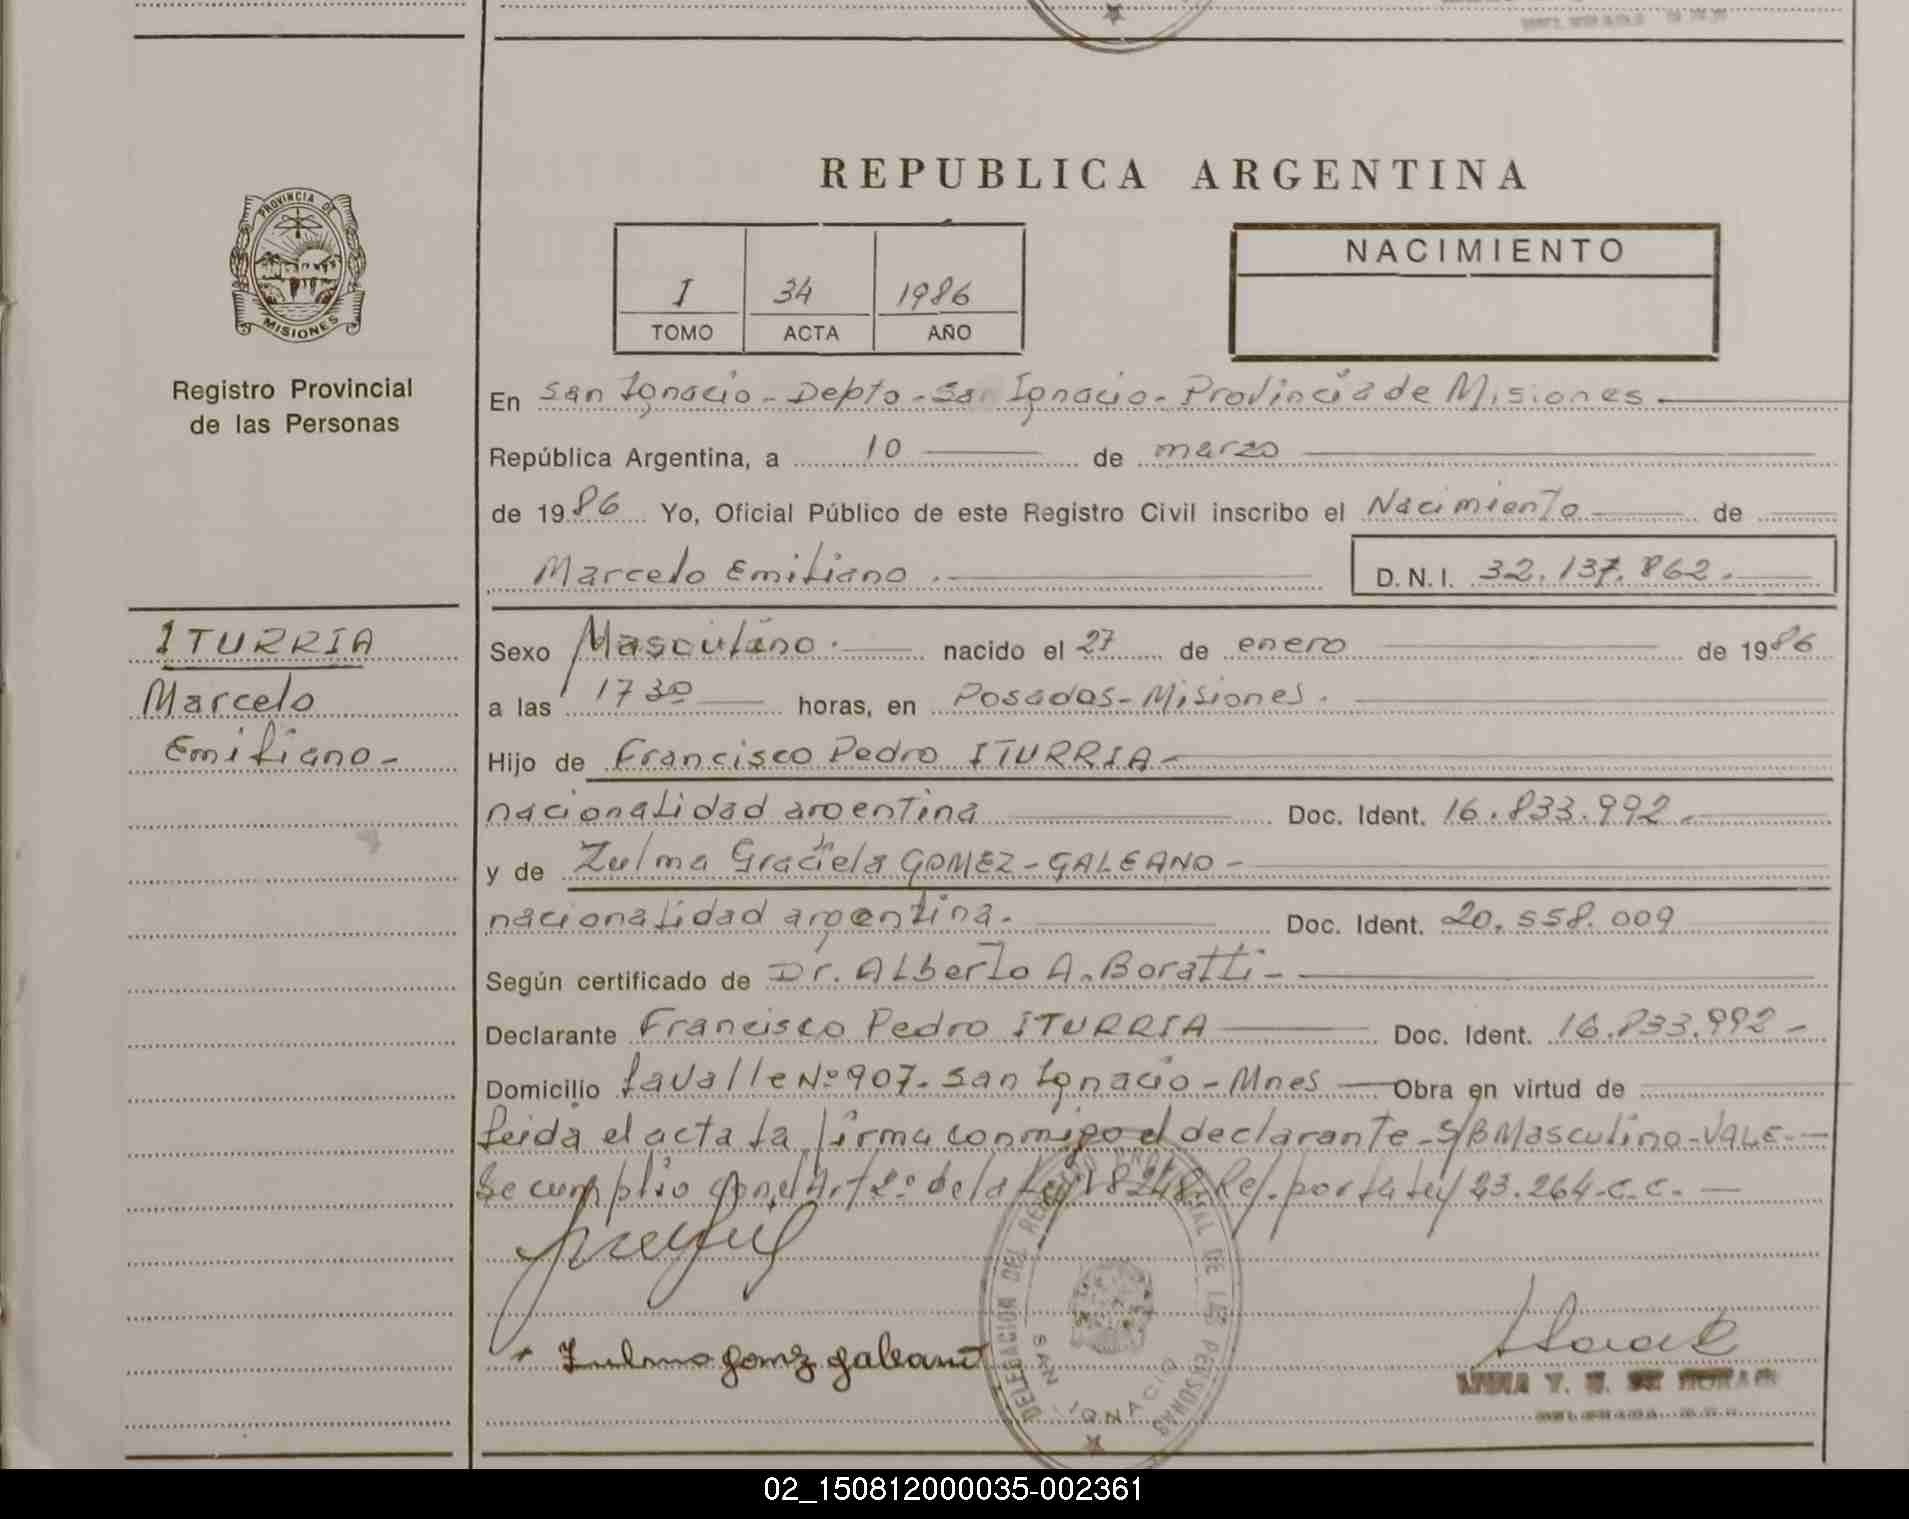 REPUBLICA ARGENTINA
PROVINCIA DE
MISIONES
Registro Provincial
de las Personas
I 34 1986
TOMO ACTA AÑO
NACIMIENTO
En San Ignacio - Depto - San Ignacio - Provincia de Misiones
República Argentina, a 10 de marzo
de 1986 Yo, Oficial Público de este Registro Civil inscribo el Nacimiento de
Marcelo Emiliano. D.N.I. 32.137.862.
ITURRIA
Marcelo
Emiliano -
Sexo Masculino. nacido el 27 de enero de 1986
a las 17 30 horas, en Posadas - Misiones.
Hijo de Francisco Pedro ITURRIA -
nacionalidad argentina Doc. Ident. 16.833.992.
y de Zulma Graciela GOMEZ - GALEANO -
nacionalidad argentina. Doc. Ident. 20.558.009
Según certificado de Dr. Alberto A. Boratti -
Declarante Francisco Pedro ITURRIA Doc. Ident. 16.833.992 -
Domicilio Lavalle Nº 907. San Ignacio - Mnes Obra en virtud de
Leida el acta la firma conmigo el declarante - S/B Masculino - VALE -
Se cumplio con el Art 2º de la Ley 18248. Ref. por la Ley 23.264 - C.C. -
Zulma Gomez Galeano
DELEGACION DEL REGISTRO PROVINCIAL DE LAS PERSONAS
SAN IGNACIO
02_150812000035-002361